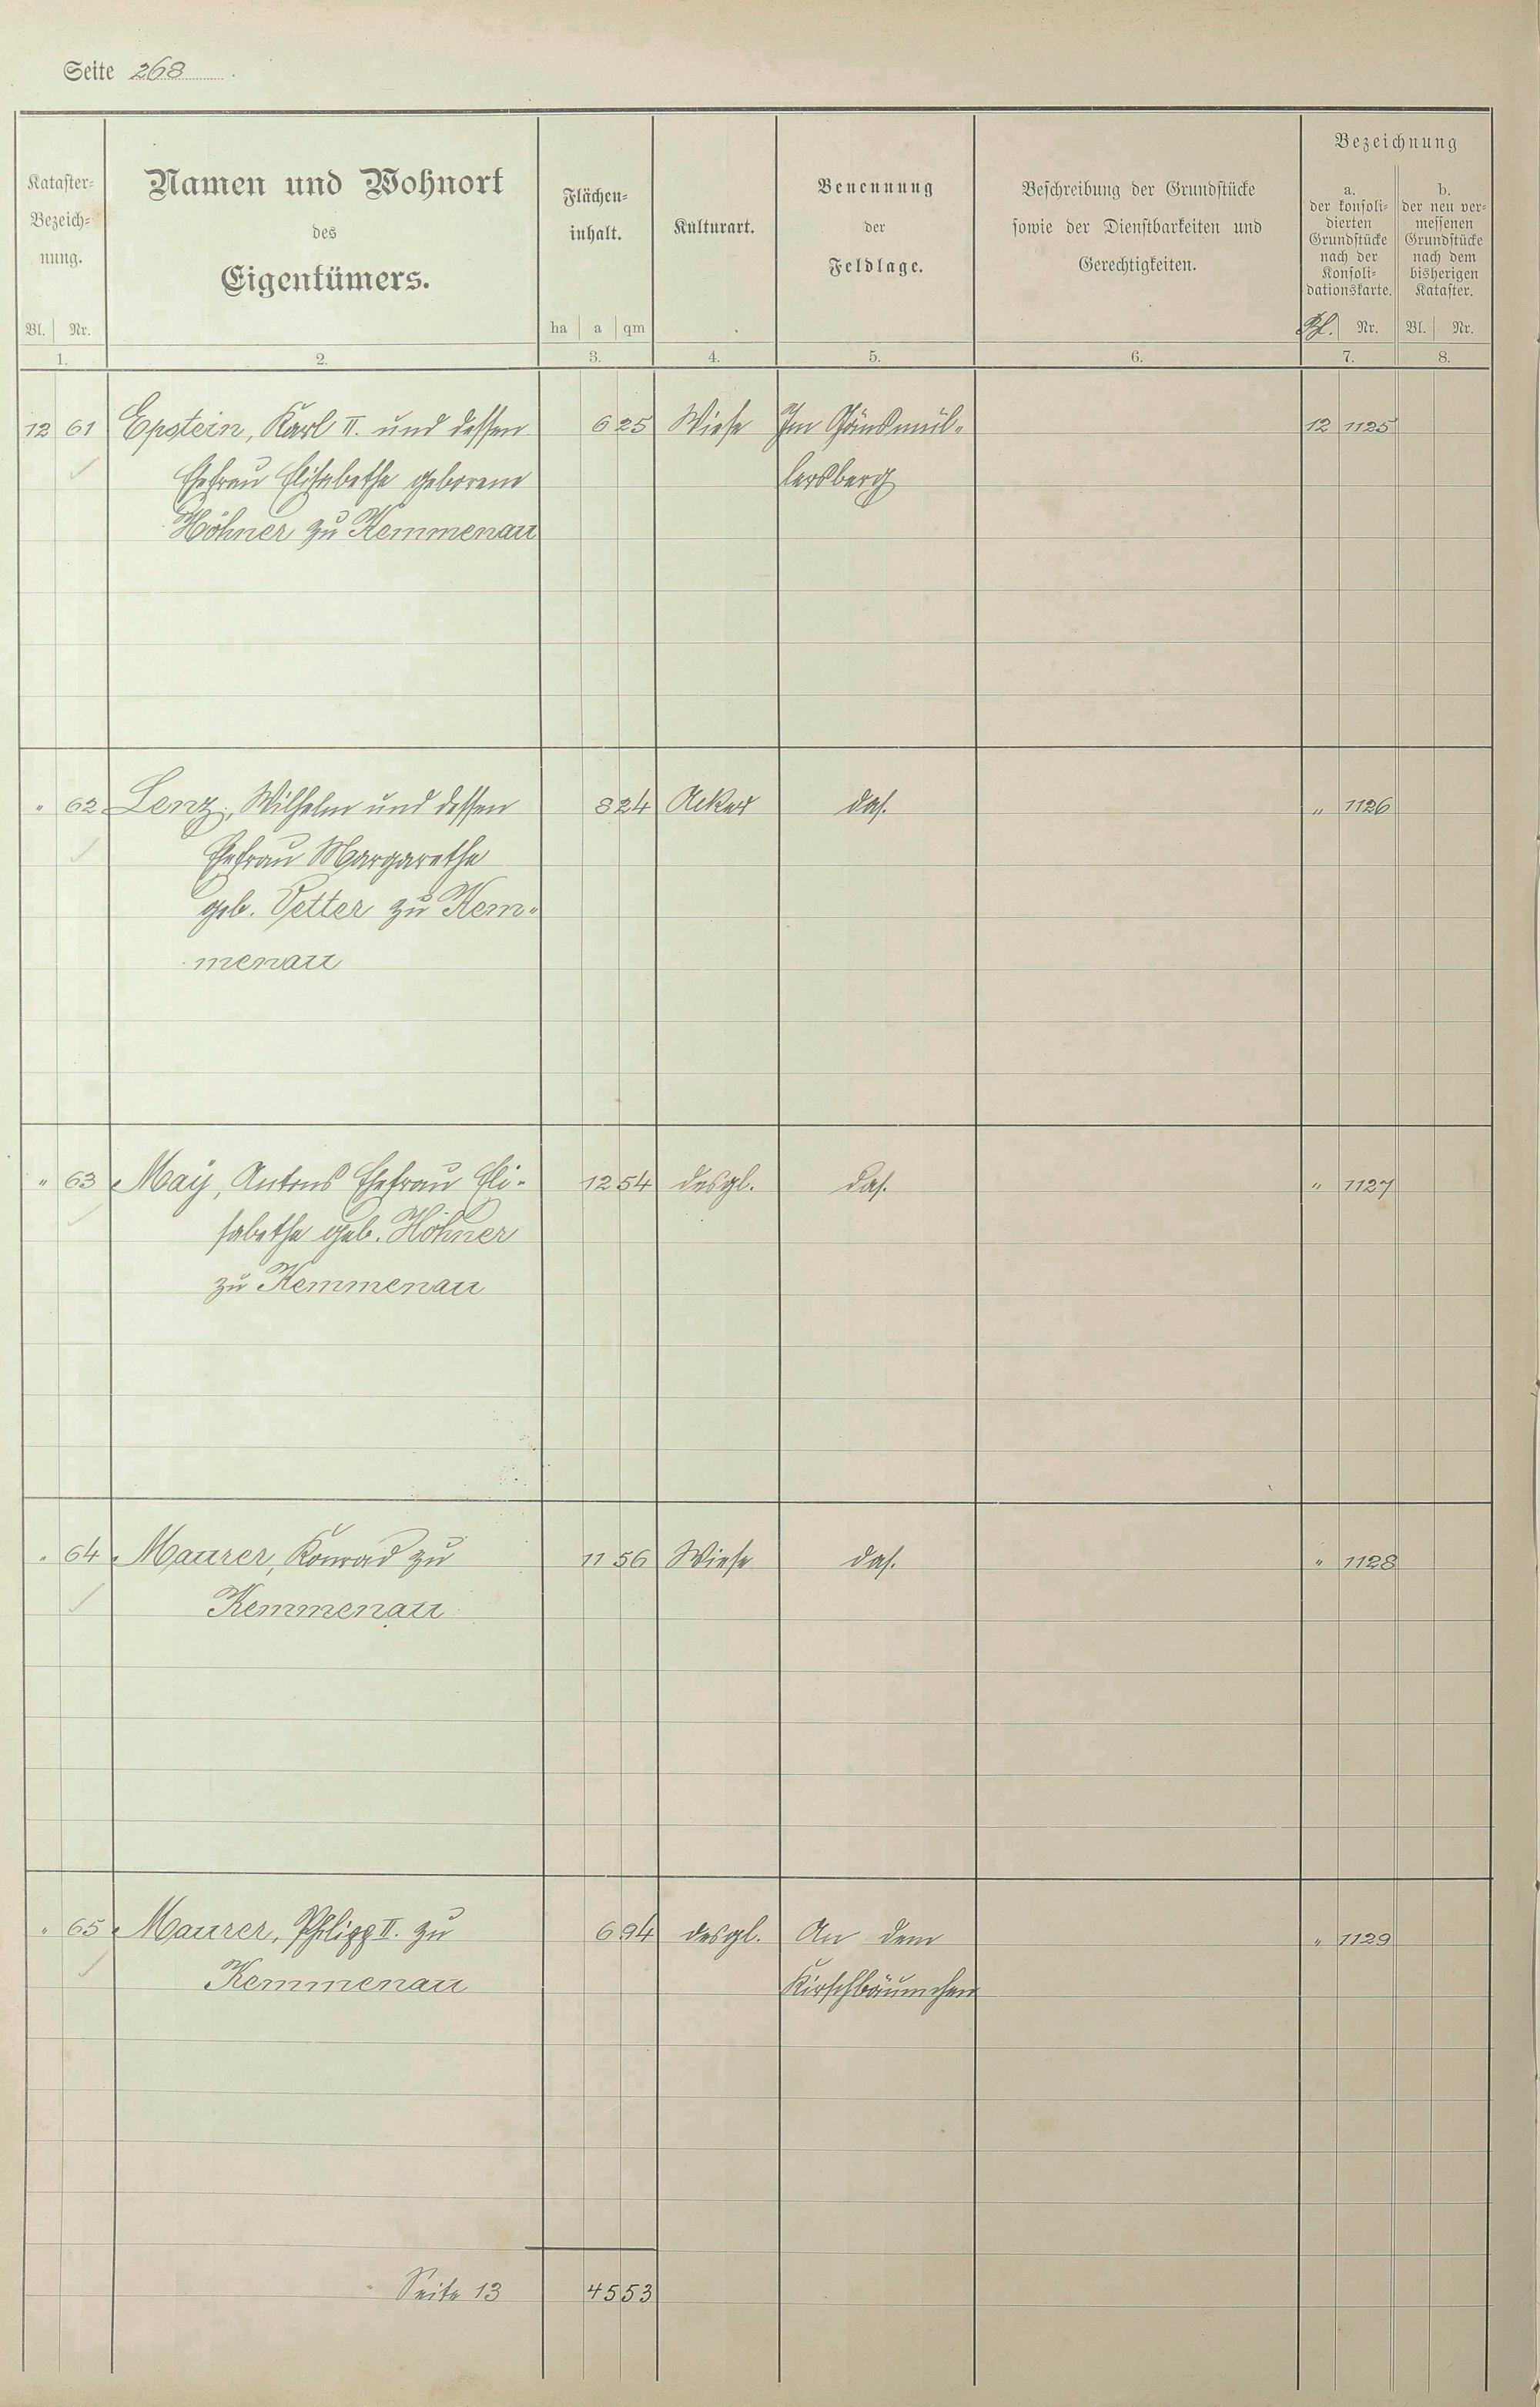 Seite 268
Kataster-
Bezeich-
nung.
Bl. Nr.
1.
Namen und Wohnort
des
Eigentümers.
2.
Flächen-
inhalt.
ha a qm
3.
Kulturart.
4.
Benennung
der
Feldlage.
5.
Beschreibung der Grundstücke
sowie der Dienstbarkeiten und
Gerechtigkeiten.
6.
Bezeichnung
a.
der konsoli-
dierten
Grundstücke
nach der
Konsoli-
dationskarte.
Bl. Nr.
7.
b.
der neu ver-
messenen
Grundstücke
nach dem
bisherigen
Kataster.
Bl. Nr.
8.
12 61 Epstein, Karl II. und dessen 6 25 Wiese Im Gänsmül- 12 1125
Ehefrau Elisabethe geborene lersberg
Höhner zu Kemmenau
" 62 Lenz, Wilhelm und dessen 8 24 Acker das. " 1126
Ehefrau Margarethe
geb. Vetter zu Kem-
menau
" 63 Maÿ, Antons Ehefrau Eli- 12 54 desgl. das. " 1127
sabethe geb. Höhner
zu Kemmenau
" 64 Maurer, Konrad zu 11 56 Wiese das. " 1128
Kemmenau
" 65 Maurer, Philipp II. zu 6 94 desgl. An dem " 1129
Kemmenau Kirschbäumchen
Seite 13 45 53